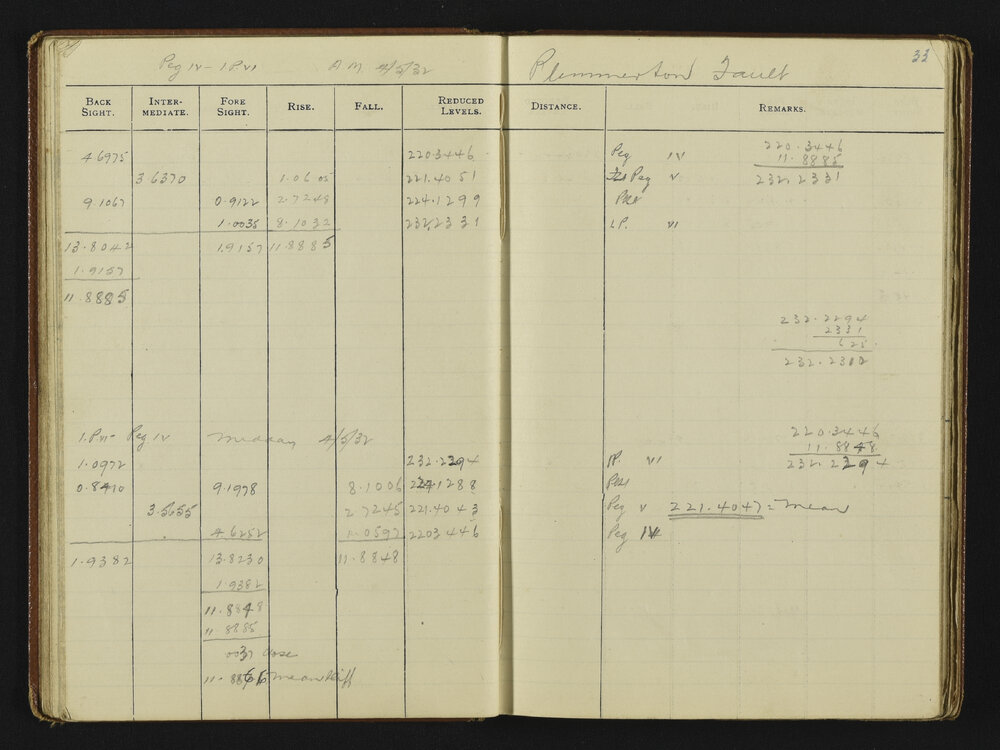 Peg IV - I.P. VI A M 4/5/32 Plimmerton Fault 33
BACK SIGHT. INTER-MEDIATE. FORE SIGHT. RISE. FALL. REDUCED LEVELS. DISTANCE. REMARKS.
4.6975 220.3446 Peg IV 220.3446
11.8885
3.6370 1.0605 221.4051 Peg V 232.2331
9.1067 0.9122 2.7248 224.1299
1.0035 8.1032 232.2331 I.P. VI
13.8042 1.9157 11.8885
1.9157
11.8885
232.2294
2331
625
232.2312
I.P. VI - Peg IV Midday 4/5/32 220.3446
11.8848
1.0972 232.2294 IP. VI 232.2294
0.8410 9.1978 8.1006 224.1288
3.5655 2.7245 221.4043 Peg V 221.4047 = Mean
4.6252 1.0597 220.3446 Peg IV
1.9382 13.8230 11.8848
1.9382
11.8848
11.8885
.0037 close
11.8866 mean diff